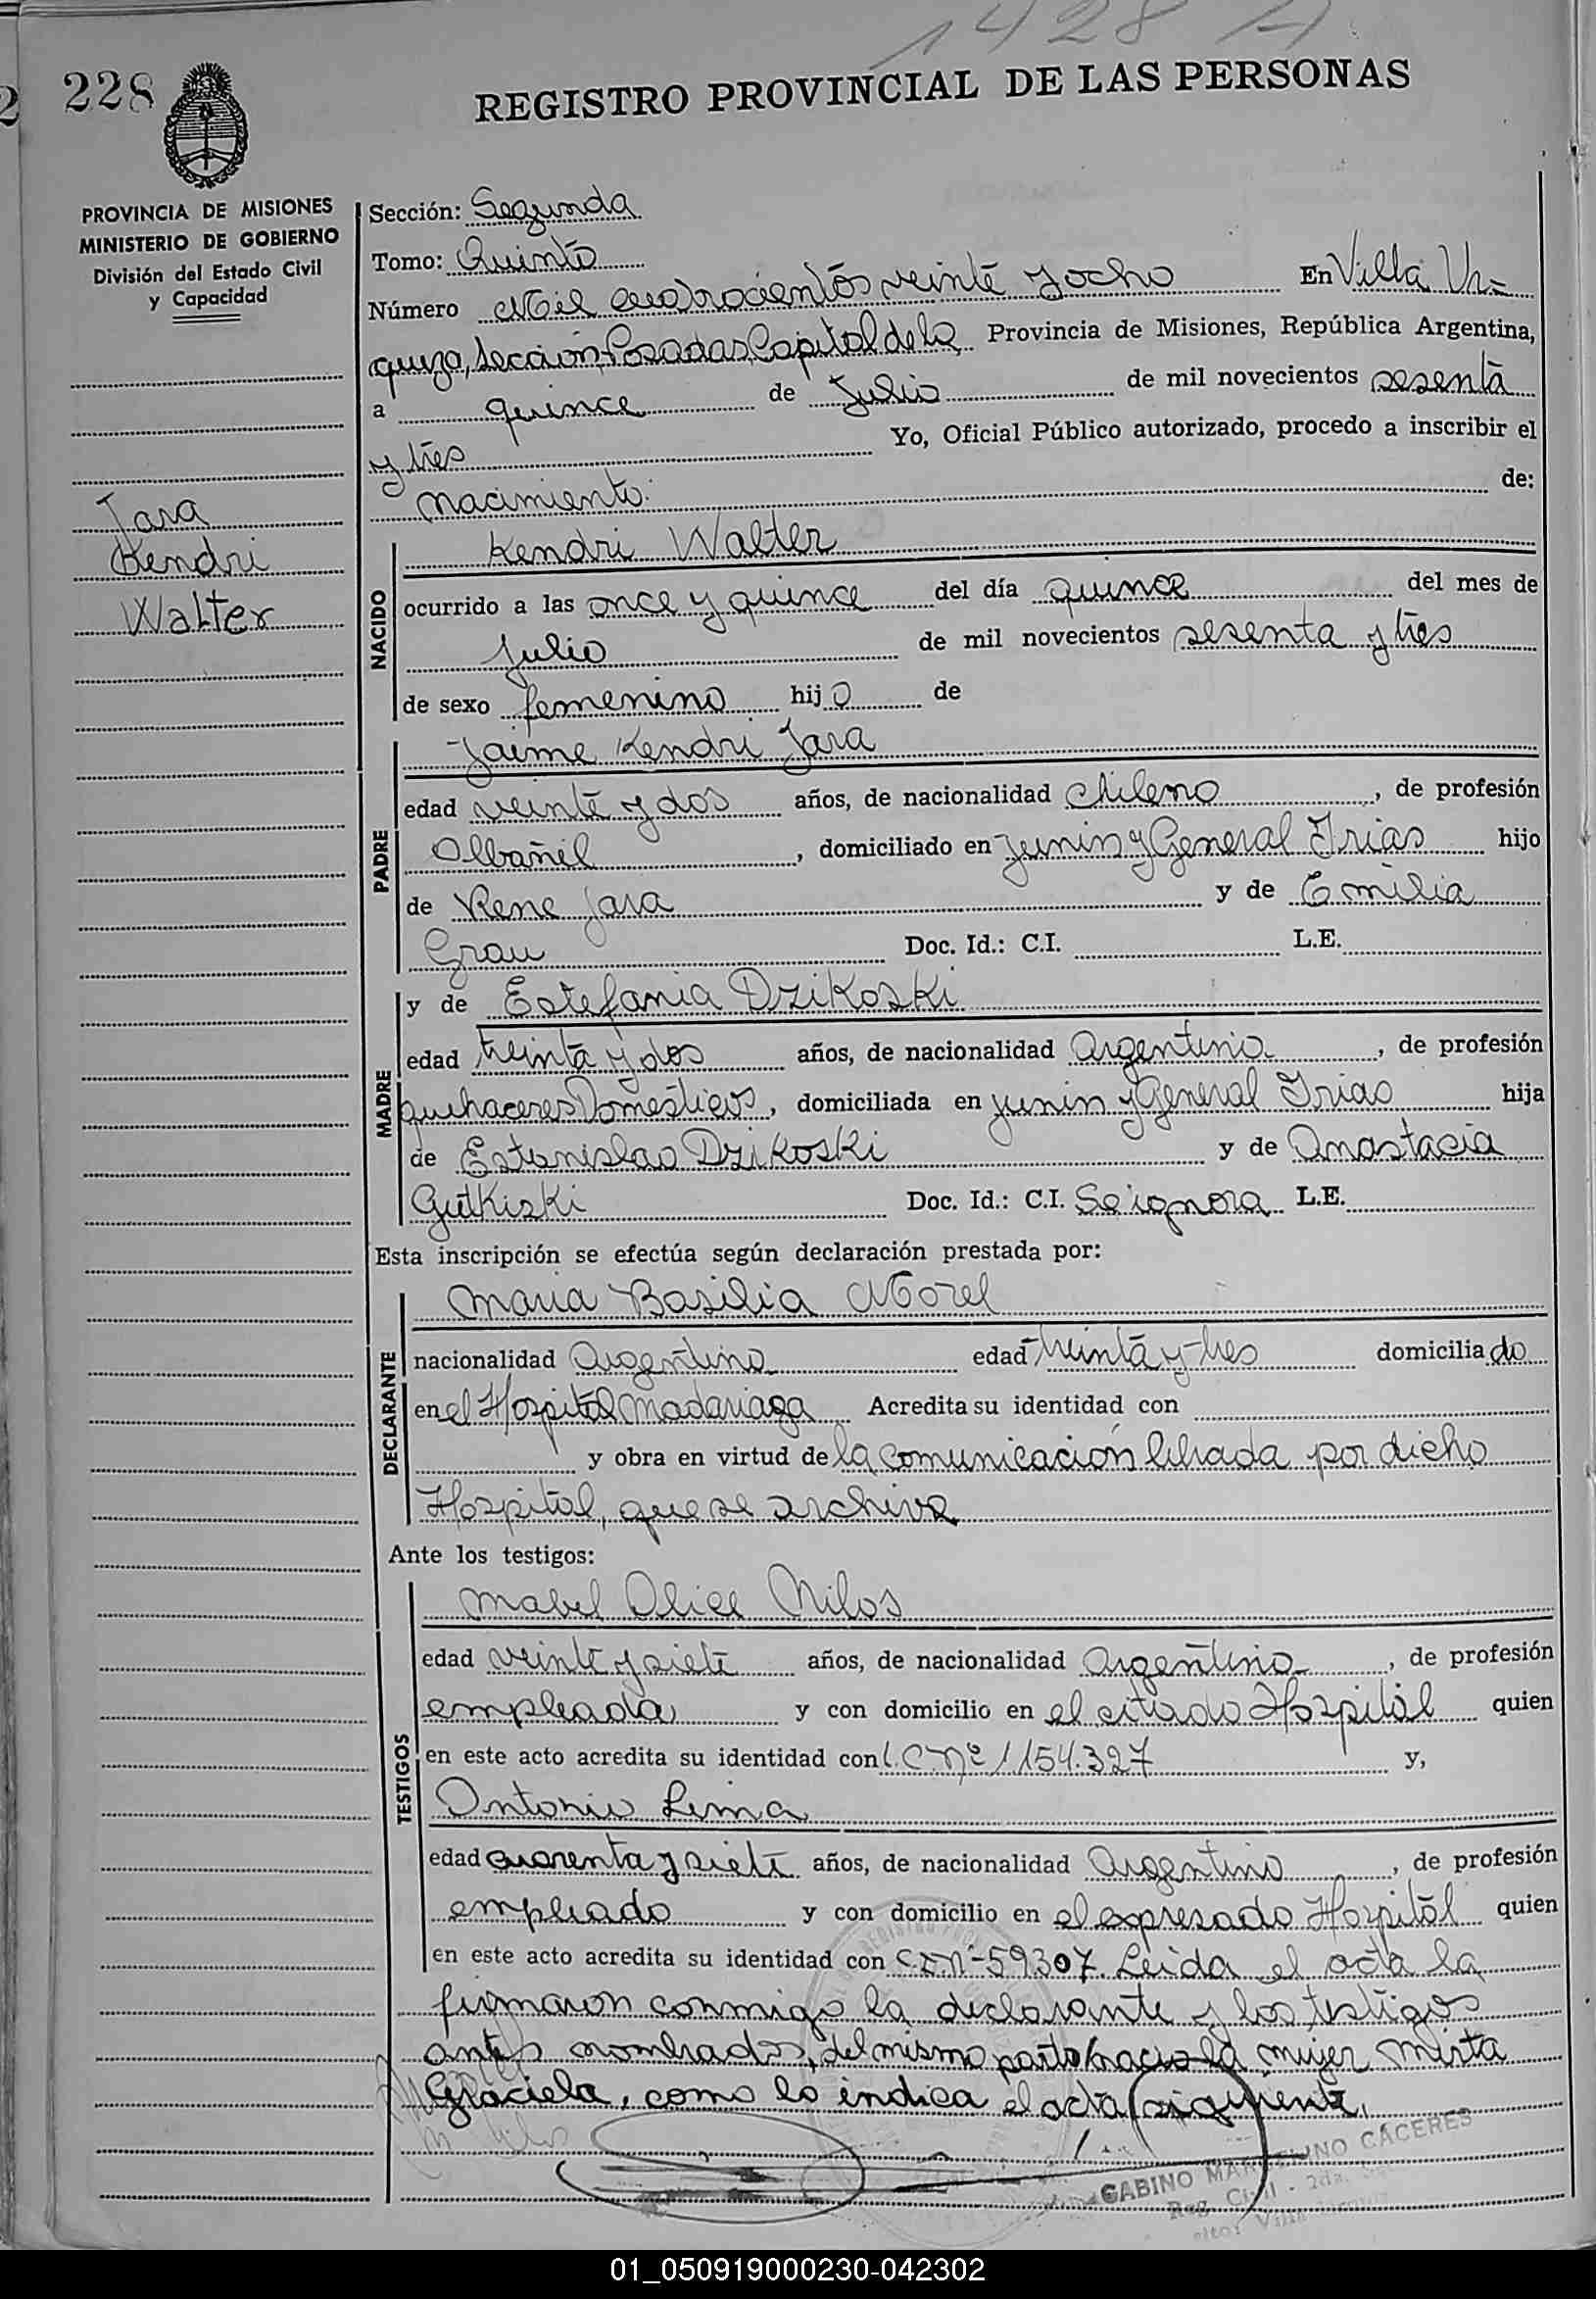 1428 A
228
REGISTRO PROVINCIAL DE LAS PERSONAS
PROVINCIA DE MISIONES
MINISTERIO DE GOBIERNO
División del Estado Civil
y Capacidad
Jara
Kendri
Walter
Sección: Segunda
Tomo: Quinto
Número Mil cuatrocientos veinte y ocho En Villa Ur=
quiza, Sección Posadas, Capital de la Provincia de Misiones, República Argentina,
a quince de Julio de mil novecientos sesenta
y tres Yo, Oficial Público autorizado, procedo a inscribir el
nacimiento: de:
NACIDO
Kendri Walter
ocurrido a las once y quince del día quince del mes de
Julio de mil novecientos sesenta y tres
de sexo femenino hijo de
PADRE
Jaime Kendri Jara
edad veinte y dos años, de nacionalidad chileno, de profesión
Albañil, domiciliado en Junin y General Frias hijo
de Rene Jara y de Emilia
Grau Doc. Id.: C.I. L.E.
MADRE
y de Estefania Dzikoski
edad treinta y dos años, de nacionalidad Argentina, de profesión
quehaceres Domesticos, domiciliada en Junin y General Frias hija
de Estanislao Dzikoski y de Anastacia
Gutkiski Doc. Id.: C.I. Se ignora L.E.
Esta inscripción se efectúa según declaración prestada por:
DECLARANTE
Maria Basilia Morel
nacionalidad Argentina edad treinta y tres domiciliado
en el Hospital Madariaga Acredita su identidad con
y obra en virtud de la comunicación librada por dicho
Hospital, que se archiva
Ante los testigos:
TESTIGOS
Mabel Alice Milos
edad veinte y siete años, de nacionalidad Argentina, de profesión
empleada y con domicilio en el citado Hospital quien
en este acto acredita su identidad con L.C. Nº 1154.327 y,
Antonio Lima
edad cuarenta y siete años, de nacionalidad Argentino, de profesión
empleado y con domicilio en el expresado Hospital quien
en este acto acredita su identidad con C.I.Nº 59307. Leida el acta la
firmaron conmigo la declarante y los testigos
antes nombrados, del mismo parto nacio la mujer Mirta
Graciela, como lo indica el acta siguiente.
GABINO MARCELINO CACERES
Reg. Civil - 2da.
01_050919000230-042302